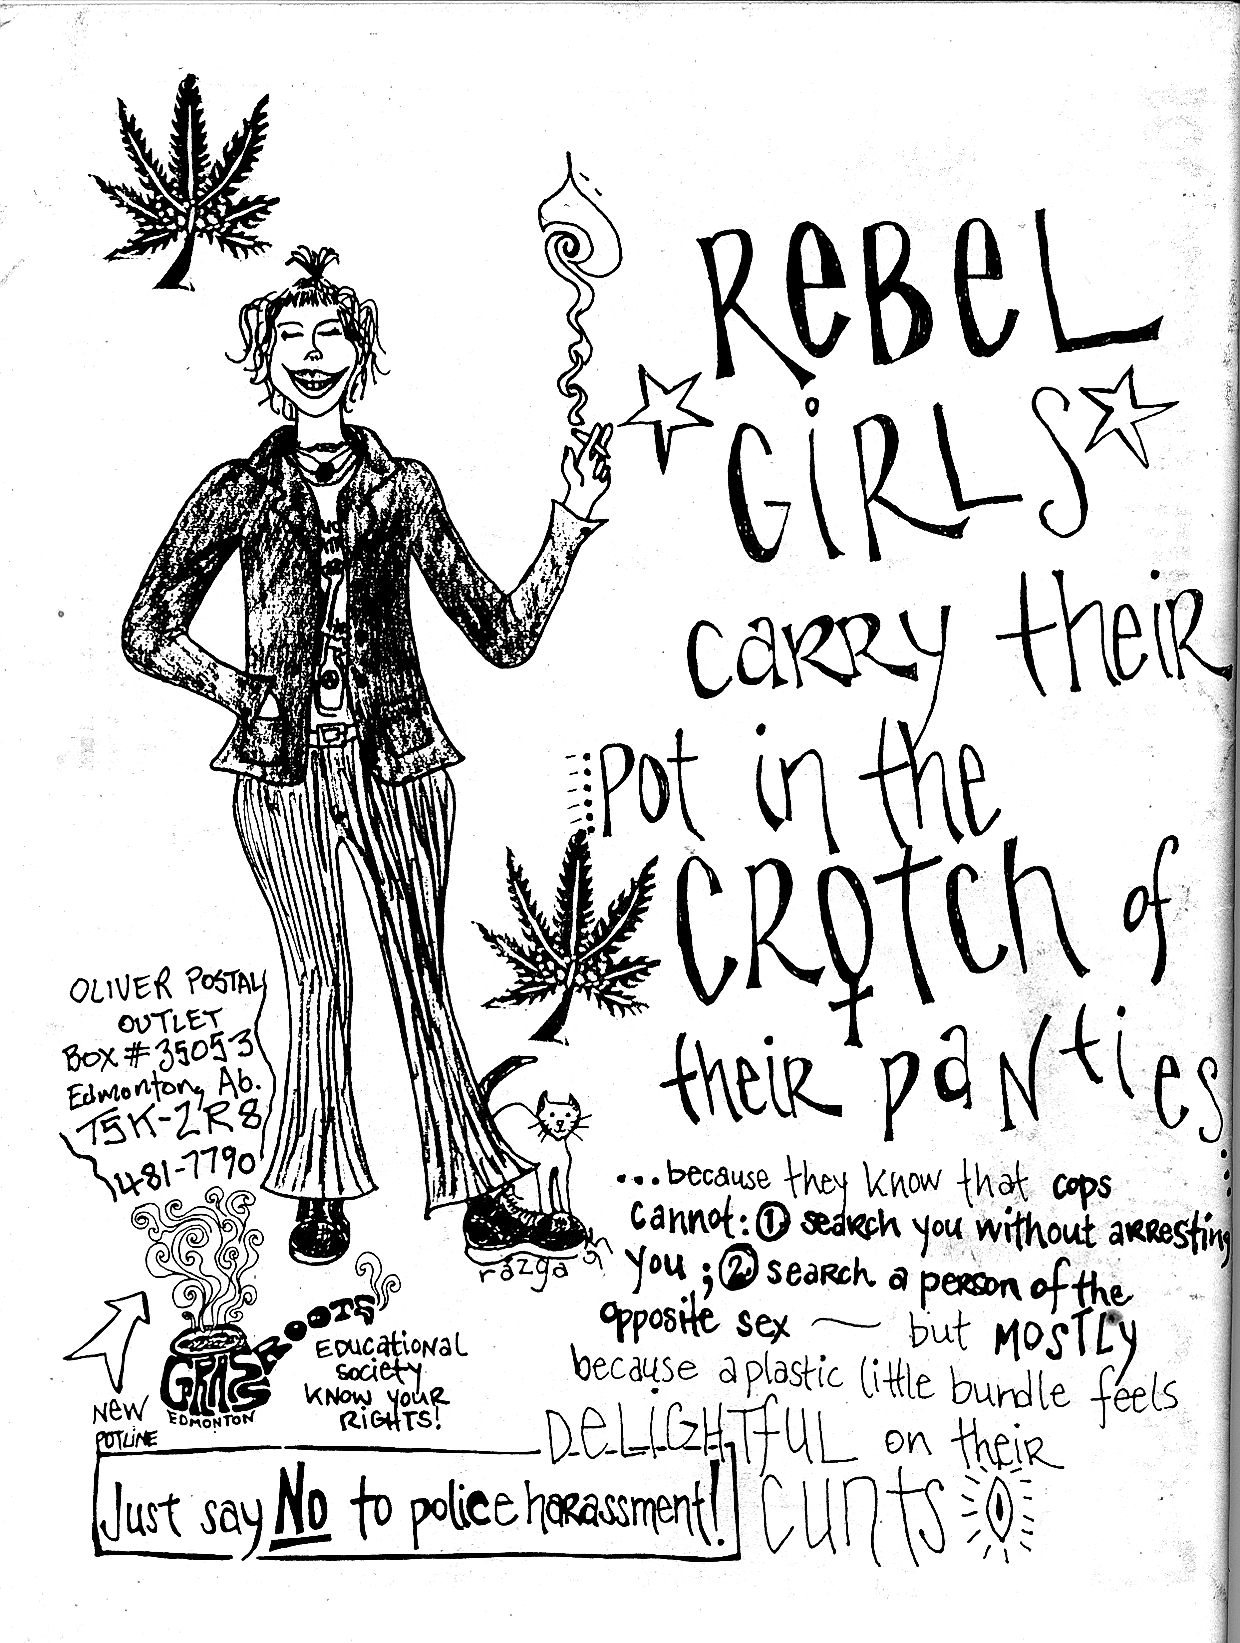 ReBeL
GiRLS
caRRy theiR
pot in the
CROTCH of
theiR paNties
...because they know that cops
cannot: ① search you without arresting
you; ② search a person of the
opposite sex — but MOSTLY
because a plastic little bundle feels
DeLiGHTfUL on theiR
cunts
OLIVER POSTAL
OUTLET
Box # 35053
Edmonton, Ab.
T5K-2R8
481-7790
rázga
GRASSROOTS
EDMONTON
Educational
society
KNOW YOUR
RiGHTS!
New
POTLiNE
Just say NO to police harassment!